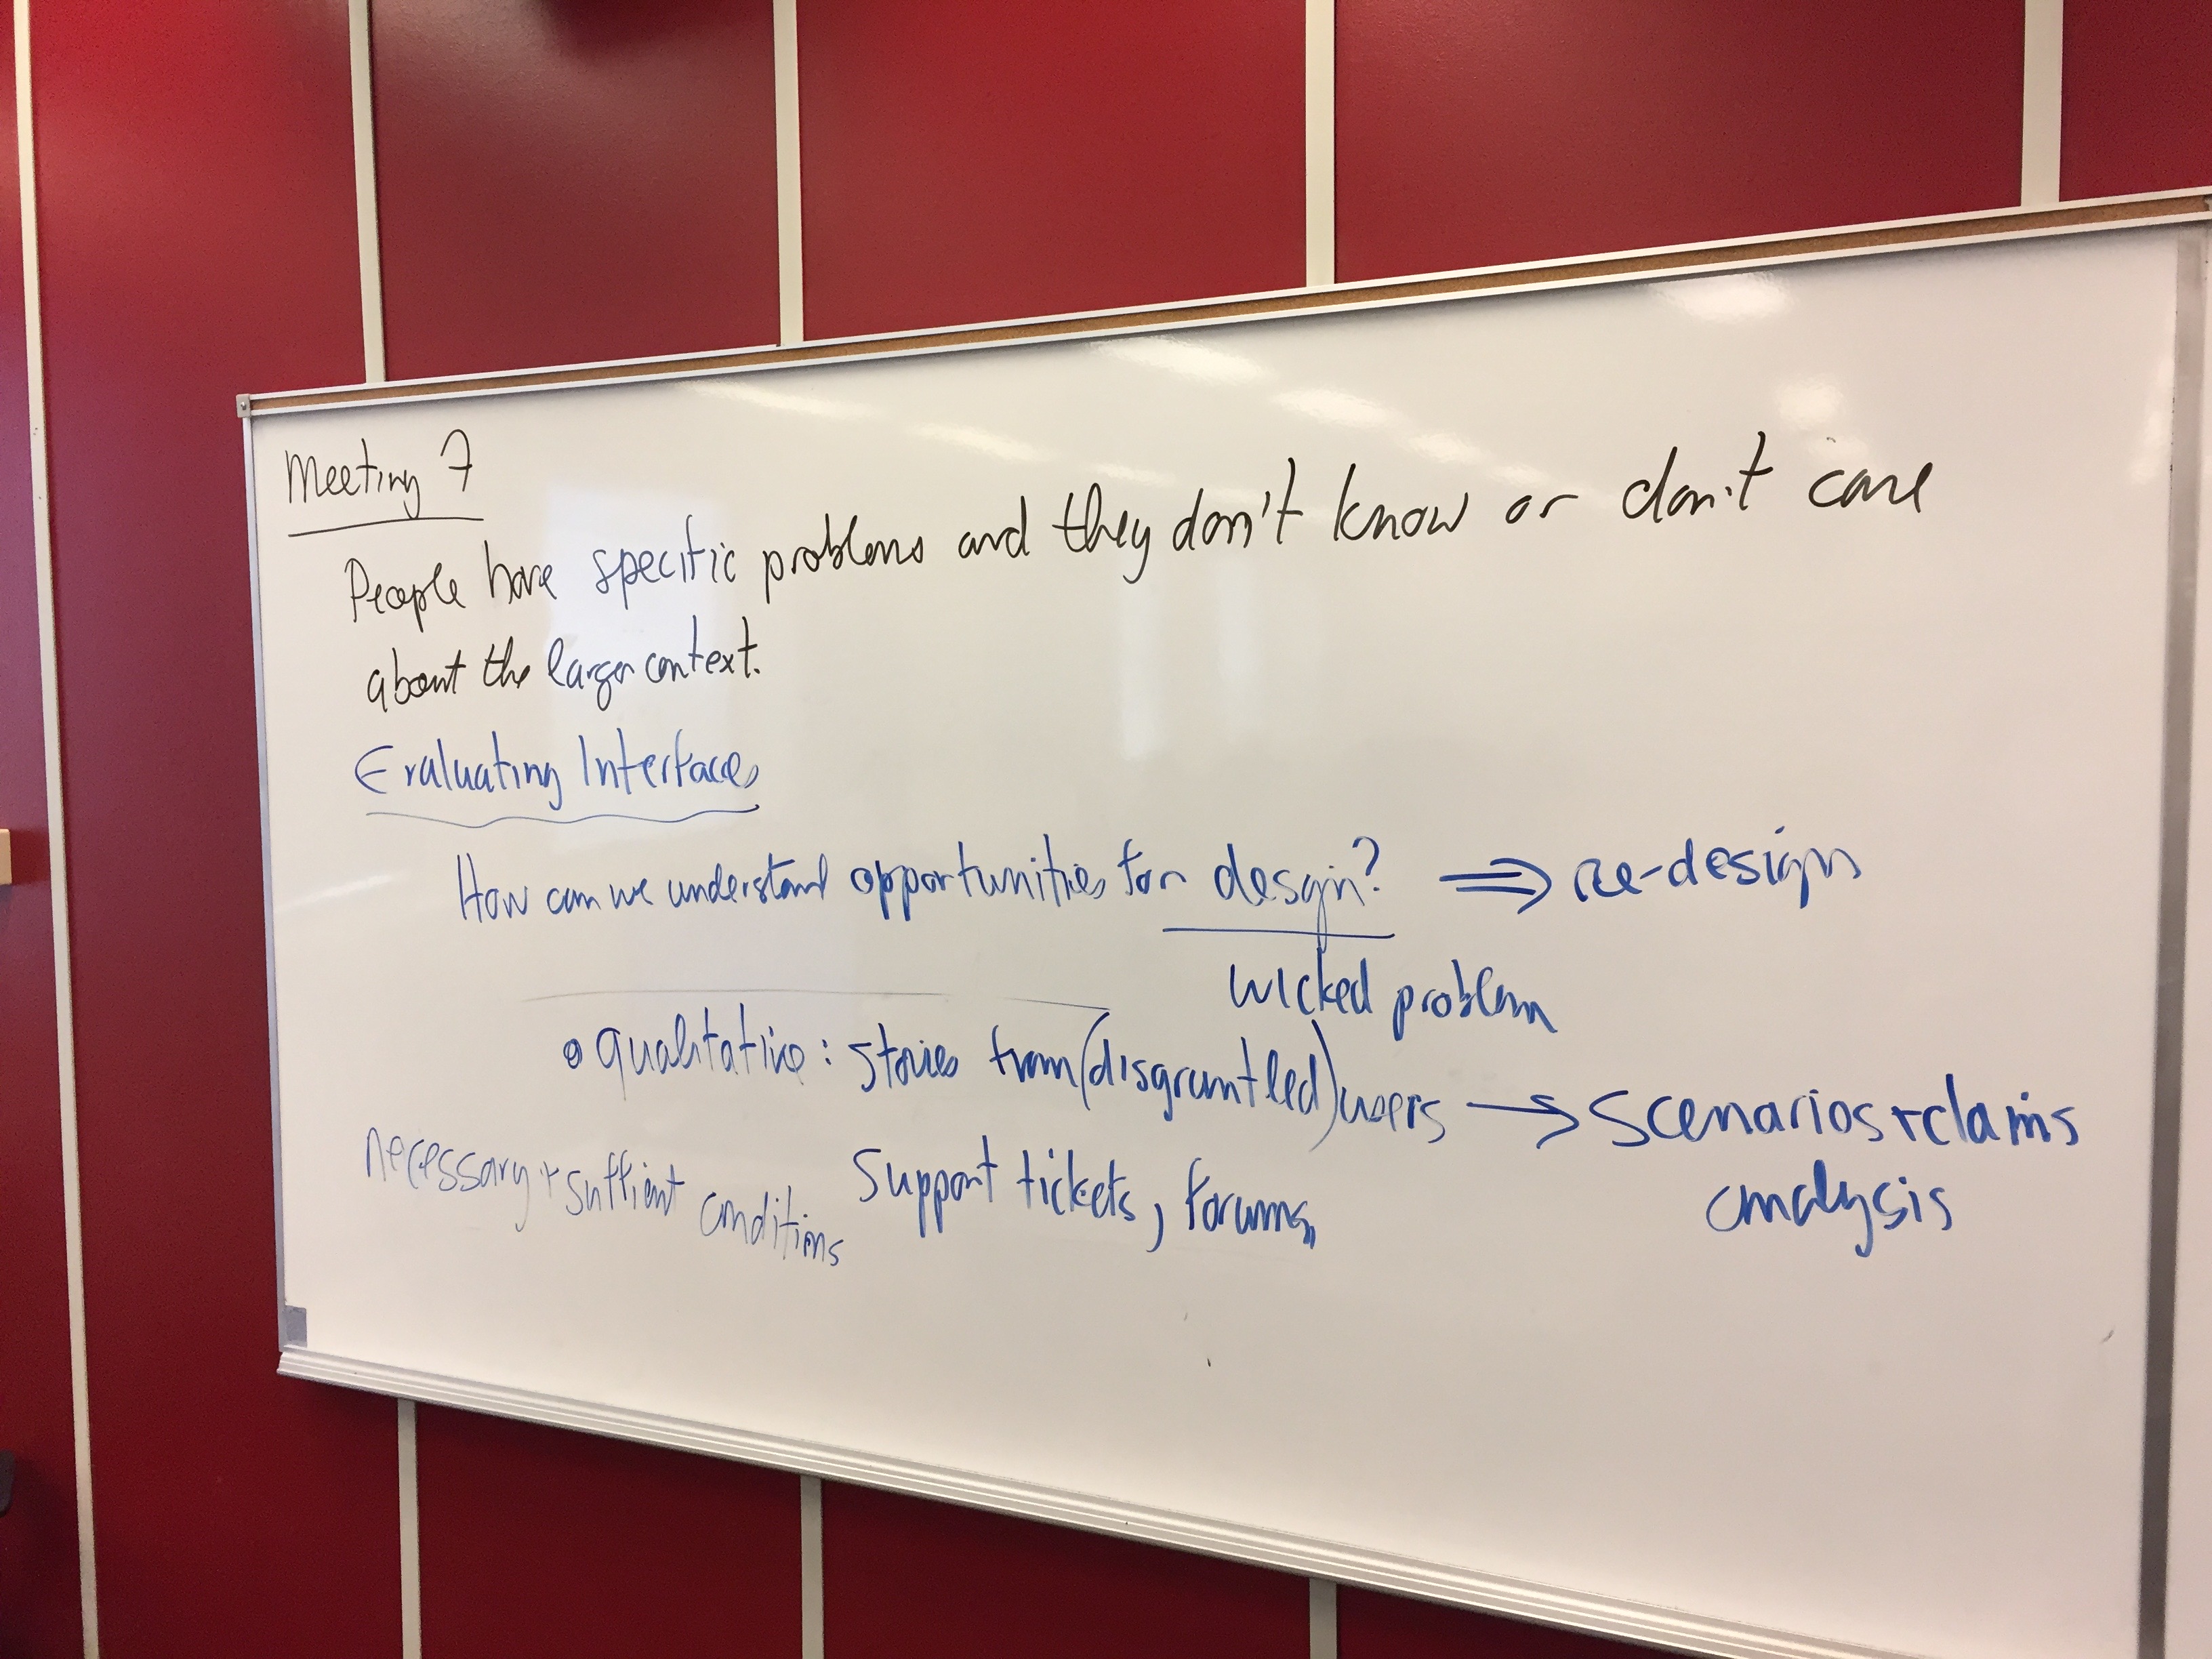 Meeting 7
People have specific problems and they don't know or don't care
about the larger context.
Evaluating Interfaces
How can we understand opportunities for design? ⇒ re-design
wicked problem
• qualitative: stories from (disgruntled) users → Scenarios + claims
analysis
necessary + suffient conditions
Support tickets, forums,